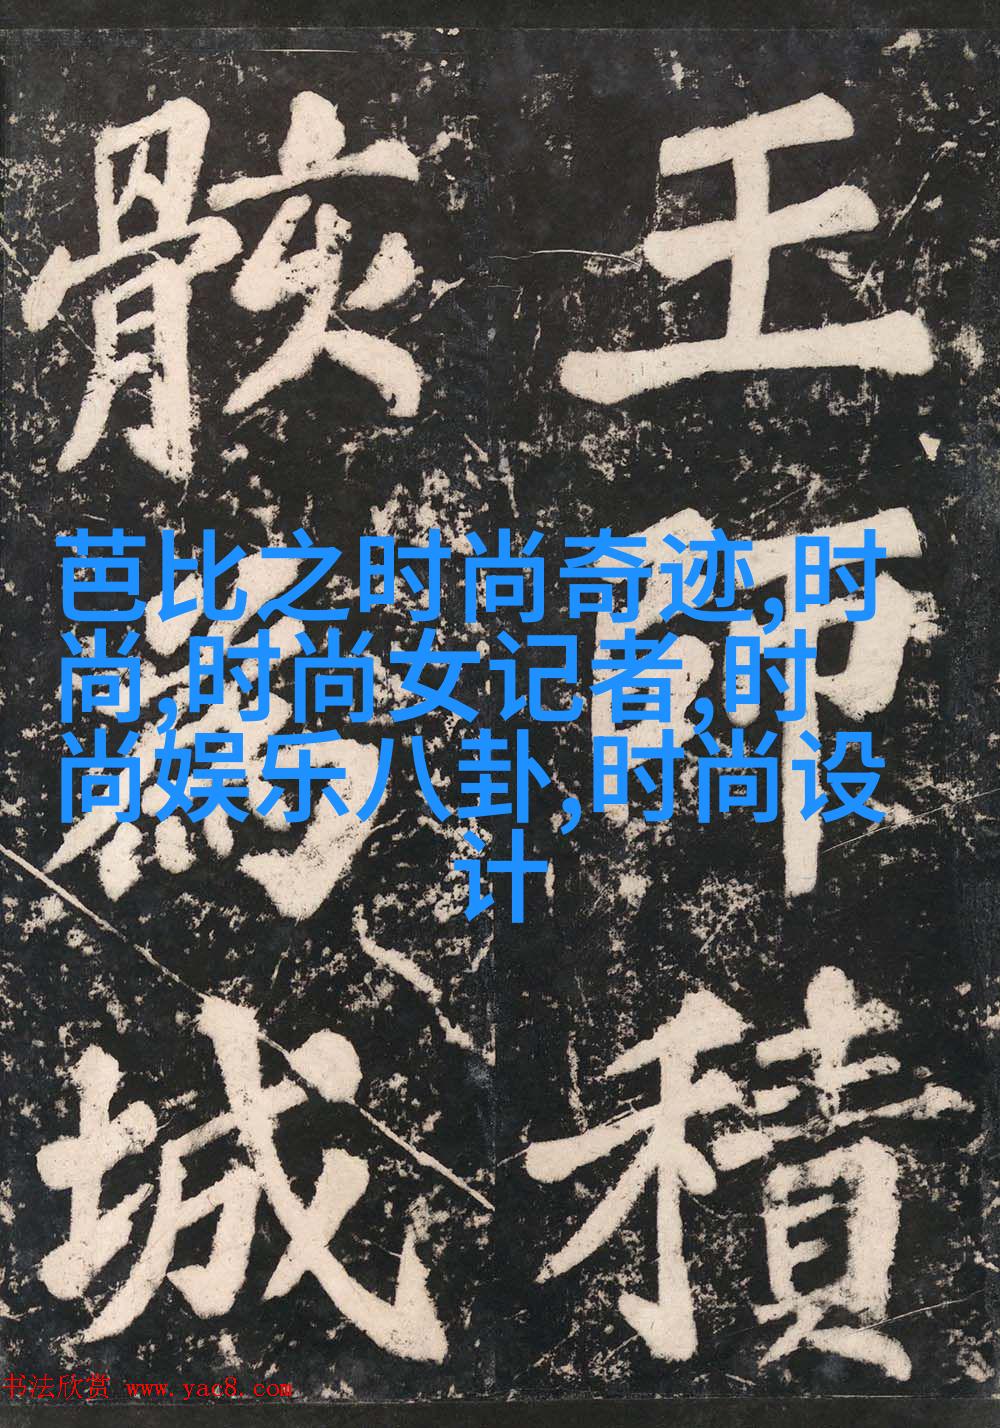 王師積
骸為城
芭比之时尚奇迹,时
尚,时尚女记者,时
尚娱乐八卦,时尚设
计
书法欣赏 www.yac8.com